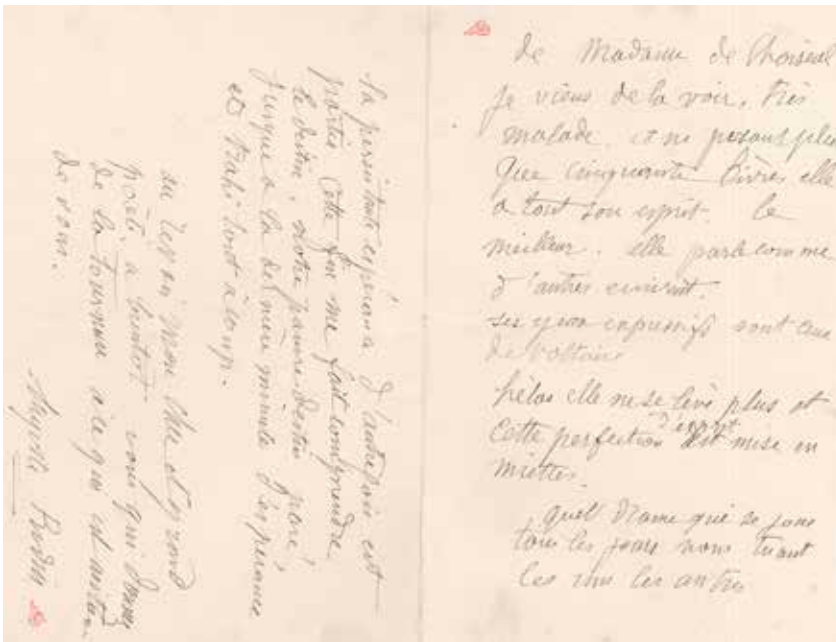 de Madame de Choiseul
je viens de la voir. très
malade. et ne pesant plus
que cinquante livres elle
a tout son esprit. le
meilleur. elle parle comme
d'autres écrivent.
ses yeux expressifs sont ceux
de voltaire
hélas elle ne se lève plus et
cette perfection d'esprit est mise en
miettes.
quel drame qui se joue
tous les jours nous tuant
les uns les autres
Sa persistante espérance d'autrefois est
partie cette fin me fait comprendre
le destin, notre pauvre destin paré
jusqu'à la dernière minute d'espérance
et trahi tout à coup.
au revoir mon cher et grand
poète a bientôt vous qui
de la tournure à ce qui est
de vous.
Auguste Rodin